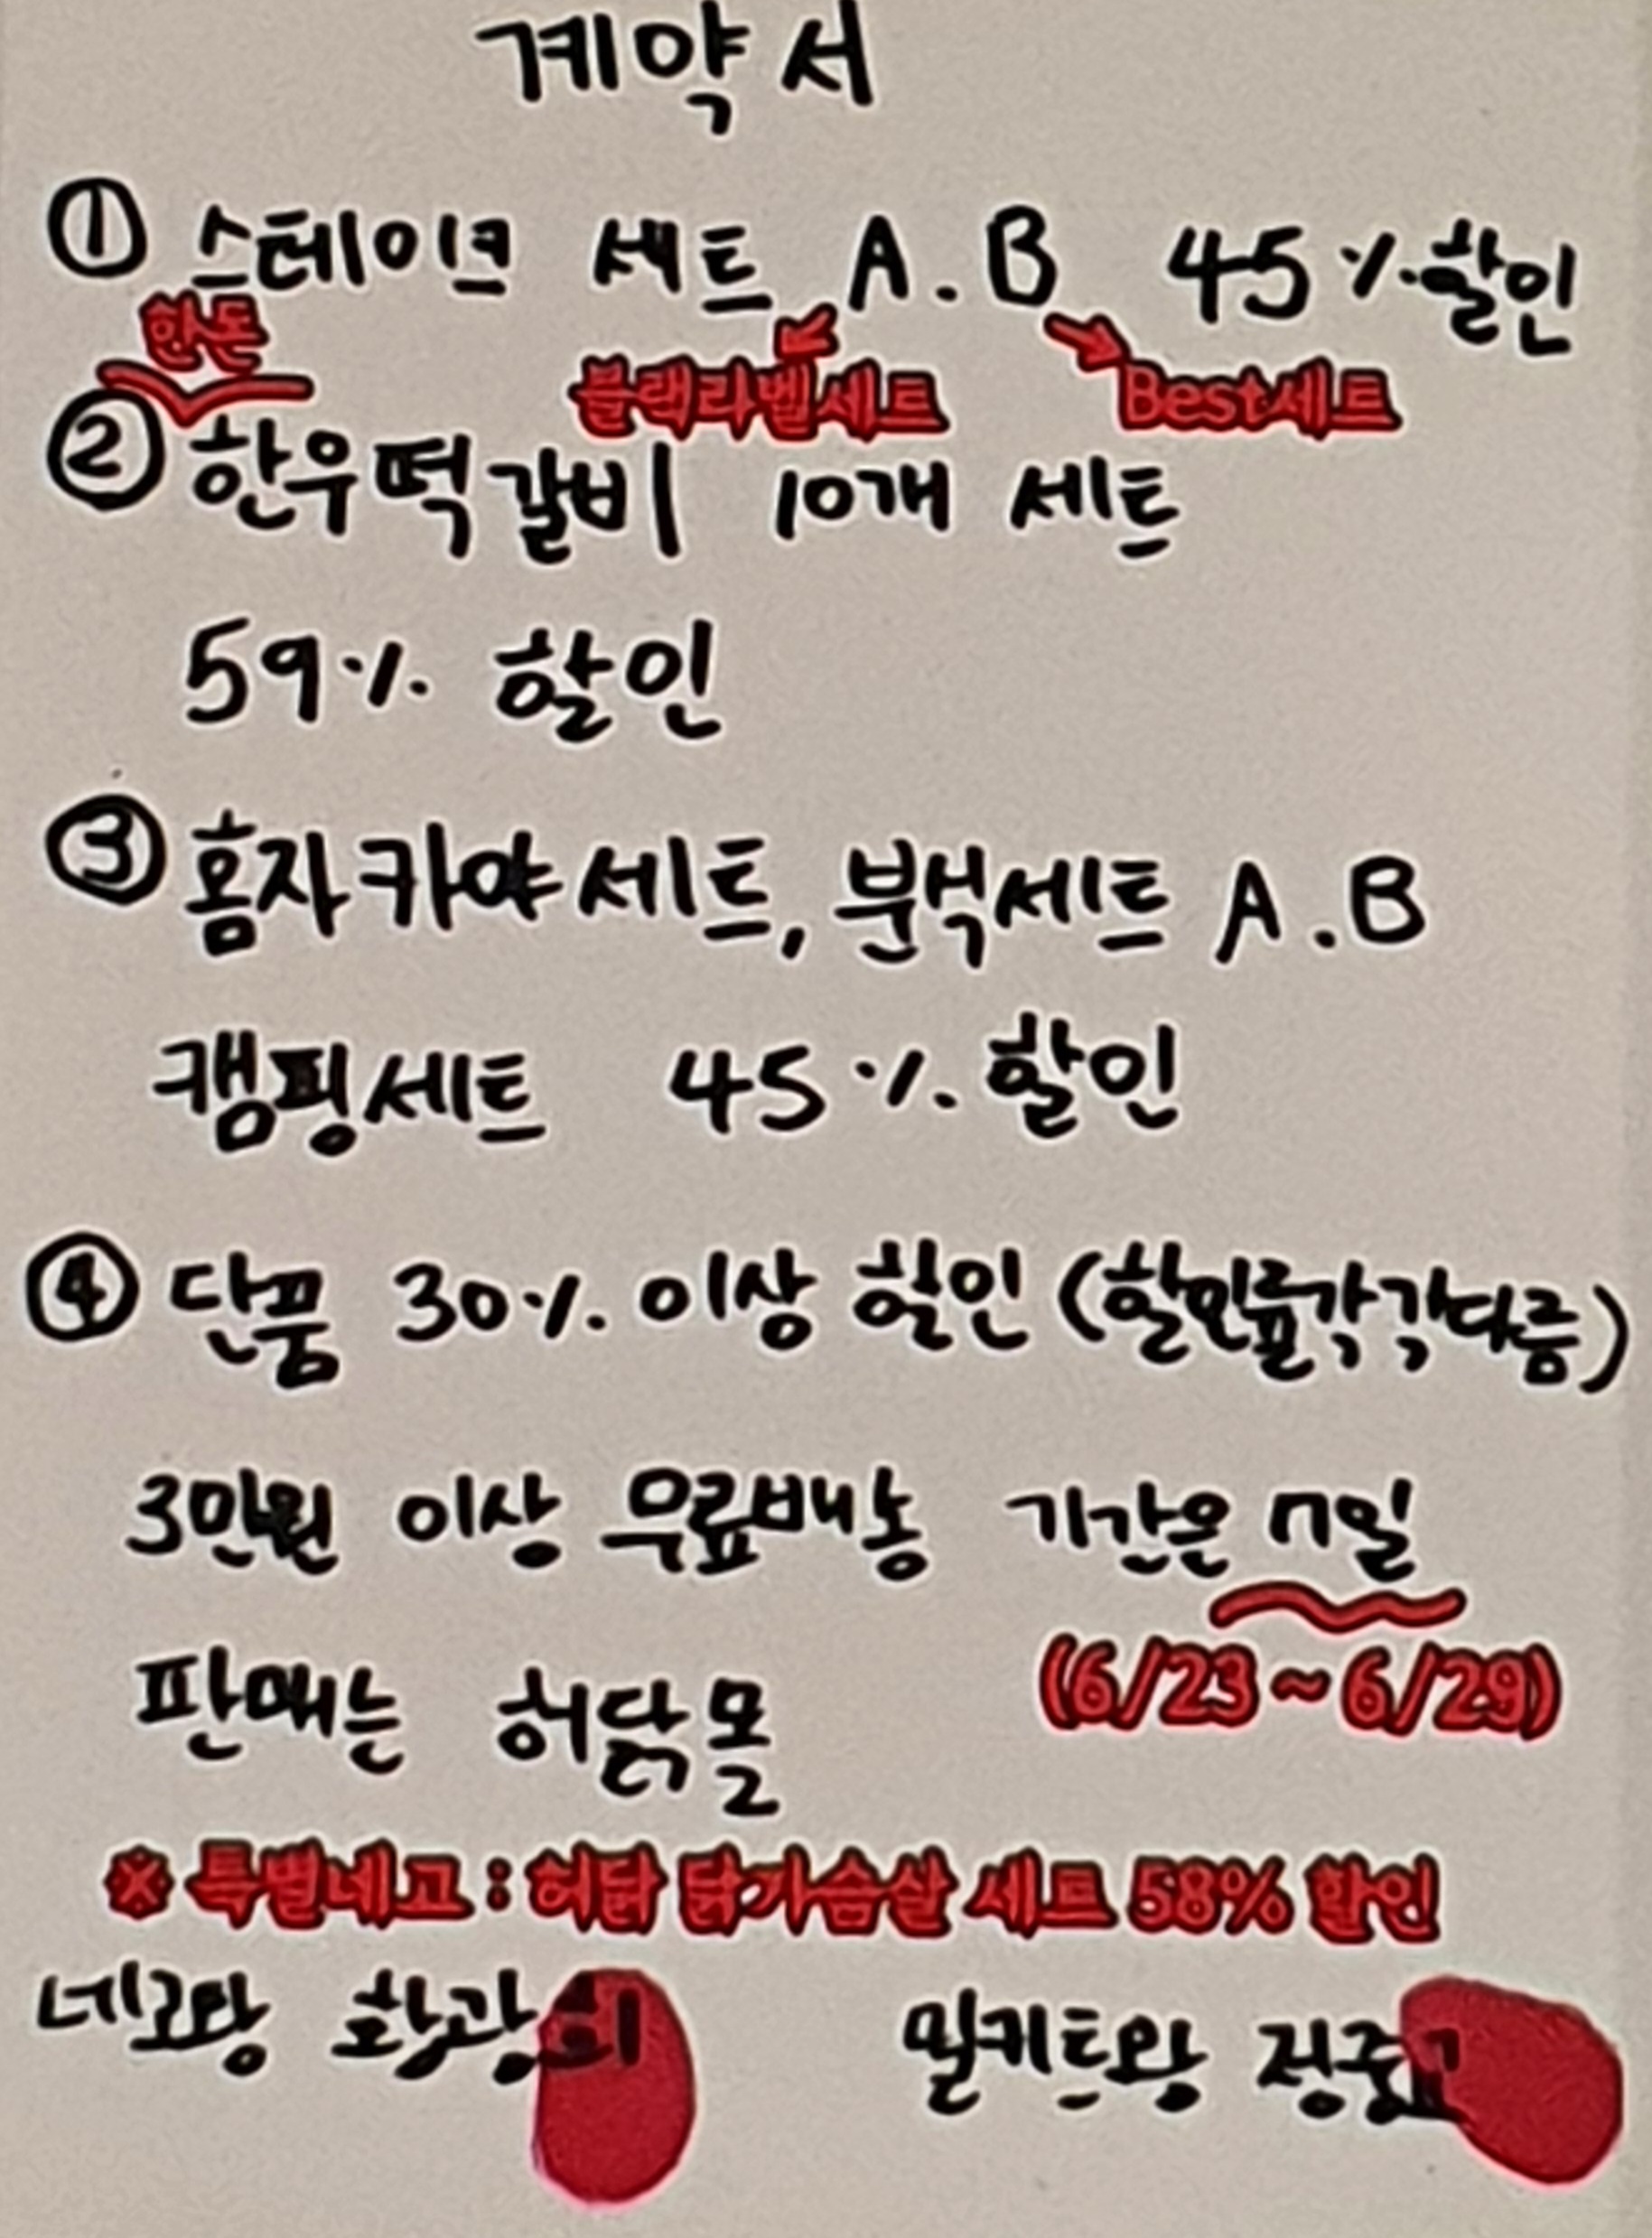 계약서
① 스테이크 세트 A.B 45% 할인
한돈
블랙라벨세트 Best세트
② 한우떡갈비 10개 세트
59% 할인
③ 홈자카야세트, 분식세트 A.B
캠핑세트 45% 할인
④ 단품 30% 이상 할인 (할인율각각다름)
3만원 이상 무료배송 기간은 7일
(6/23 ~ 6/29)
판매는 허닭몰
※ 특별네고 : 허닭 닭가슴살 세트 58% 할인
네고왕 황광희
밀키트왕 정준